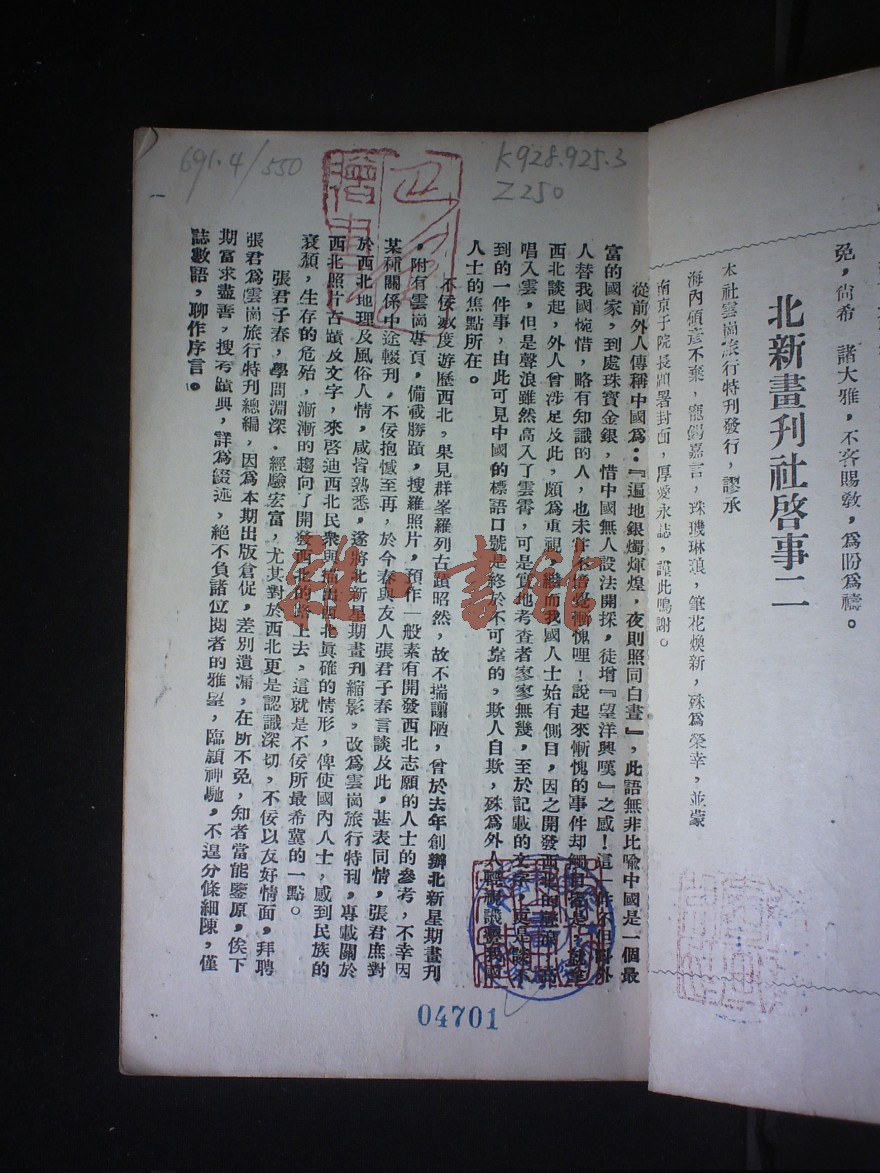 免，尙希　諸大雅，不吝賜敎，爲盼爲禱。
北新畫刋社啓事二
本社雲崗旅行特刋發行，謬承
海內碩彥不棄，寵錫嘉言，珠璣琳琅，筆花煥新，殊爲榮幸，並蒙
南京于院長題署封面，厚愛永誌，謹此鳴謝。
K928.925.3
Z250
691.4/550
從前外人傳稱中國爲：『遍地銀燭煇煌，夜則照同白晝』，此語無非比喩中國是一個最
富的國家，到處珠寳金銀，惜中國無人設法開採，徒增『望洋興嘆』之感！這一件不
人替我國惋惜，略有知識的人，也未嘗不倍覺慚愧哩！說起來慚愧的事件却
西北談起，外人曾涉足及此，頗爲重視，繼而我國人士始有側目，因之開發西北的
唱入雲，但是聲浪雖然高入了雲霄，可是實地考查者寥寥無幾，至於記載的文字，更是談不
到的一件事，由此可見中國的標語口號是終於不可靠的，欺人自欺，殊爲外人
人士的焦點所在。
不佞數度游歷西北，果見群峯羅列古蹟昭然，故不揣譾陋，曾於去年創辦北新星期畫刋
，附有雲崗專頁，備載勝蹟，搜羅照片，預作一般素有開發西北志願的人士的參考，不幸因
某種關係中途輟刋，不佞抱憾至再，於今春與友人張君子春言談及此，甚表同情，張君庶對
於西北地理及風俗人情，咸皆熟悉，遂將北新星期畫刋縮影，改爲雲崗旅行特刋，專載關於
西北照片古蹟及文字，來啓迪西北民衆與描出西北眞確的情形，俾使國內人士，感到民族的
衰頹，生存的危殆，漸漸的趨向了開發西北的路上去，這就是不佞所最希冀的一點。
張君子春，學問淵深．經驗宏富，尤其對於西北更是認識深切，不佞以友好情面，拜聘
張君爲雲崗旅行特刋總編，因爲本期出版倉促，差別遺漏，在所不免，知者當能鑒原，俟下
期富求盡善，搜考蹟典，詳爲綴述，絕不負諸位閱者的雅望，臨穎神馳，不遑分條細陳，僅
誌數語，聊作序言。
04701
雜·書館